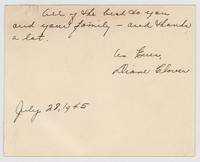 All of the best to you
and your family - and thanks
a lot.
As Ever,
Diane Clover
July 28, 1945